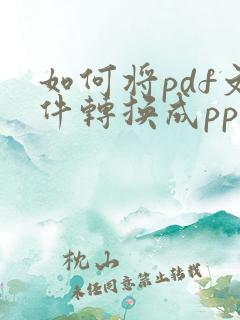 如何将pdf文
件轉换成pp
枕山
未经同意禁止转载